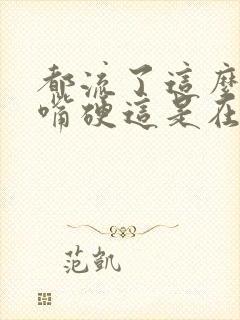 都流了這麼
嘴硬這是在
范凱